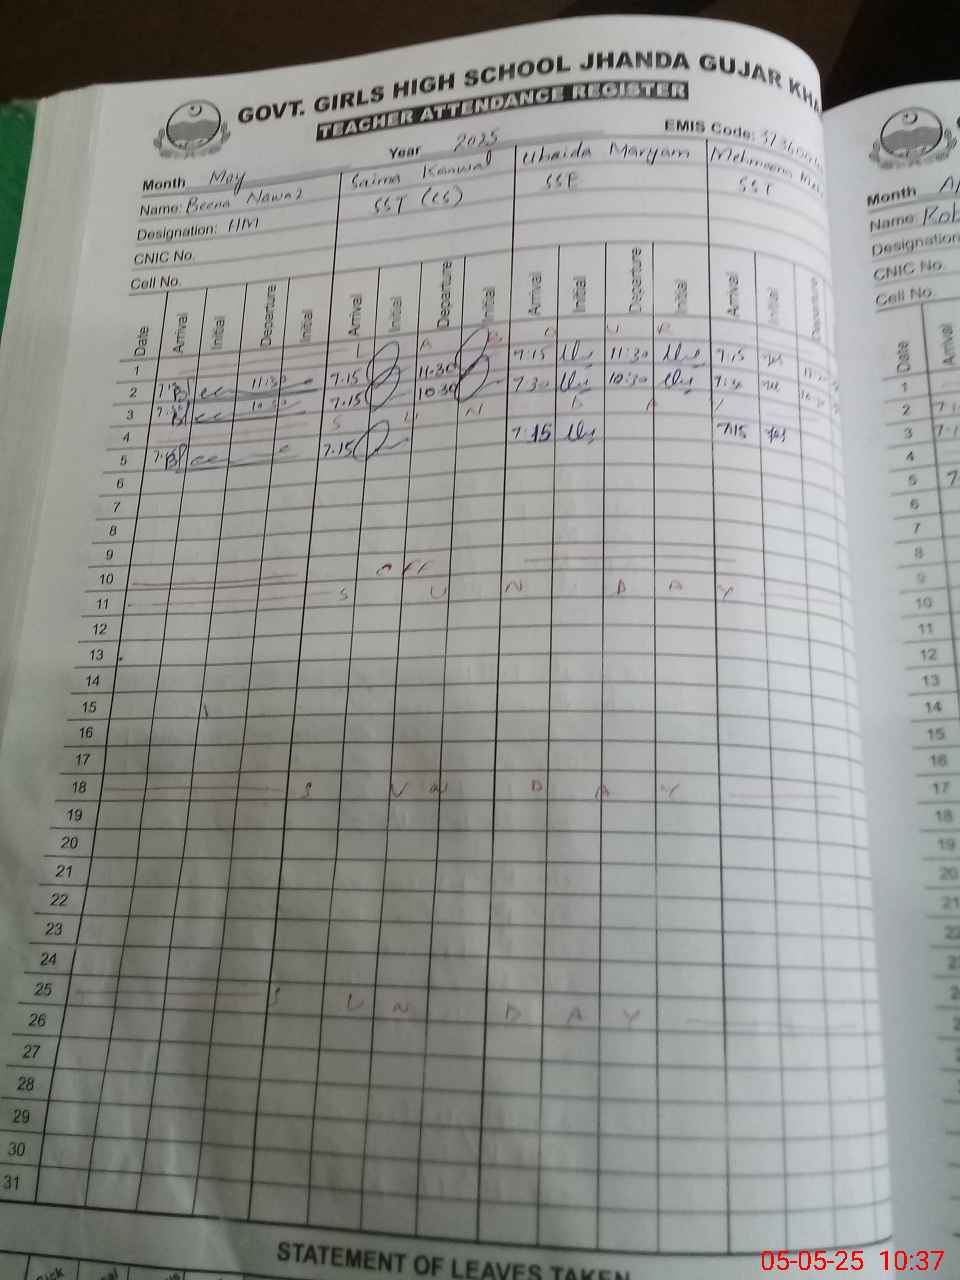 GOVT. GIRLS HIGH SCHOOL JHANDA GUJAR KHA
TEACHER ATTENDANCE REGISTER
EMIS Code:
Month May Year 2025
Name: Beena Nawaz Saima Kanwal Ubaida Maryam Mehmoona
Designation: HM SST (CS) SSE SST
CNIC No.
Cell No.
Date Arrival Initial Departure Initial Arrival Initial Departure Initial Arrival Initial Departure Initial Arrival Initial Departure
1 L A B O U R
2 11:30 7.15 11.30 7:15 11:30 7:15
3 10:30 7.15 10:30 7:30 10:30 7:30
4 S U N D A Y
5 7.15 7:15 7:15
6
7
8
9
10 off
11 S U N D A Y
12
13
14
15
16
17
18 S U N D A Y
19
20
21
22
23
24
25 S U N D A Y
26
27
28
29
30
31
STATEMENT OF LEAVES TAKEN
Month
Name:
Designation
CNIC No.
Cell No.
Date Arrival
1
2
3
4
5
6
7
8
9
10
11
12
13
14
15
16
17
18
19
20
05-05-25 10:37